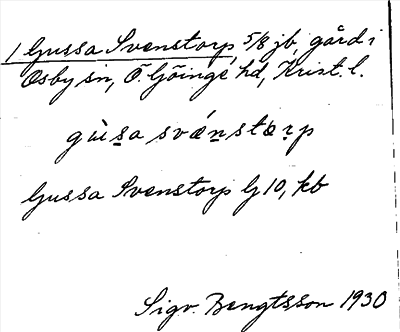 1 Gussa Svenstorp, 5/8 jb, gård i
Osby sn, Ö. Göinge hd, Krist. l.
gùs̱a svǽṉstæṛp
Gussa Svenstorp G 10, kb
Sigv. Bengtsson 1930